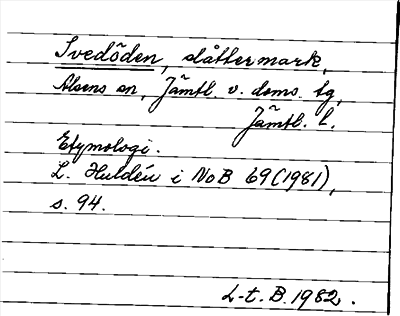 Svedöden, slåttermark,
Alsens sn, Jämtl. v. doms. tg,
Jämtl. l.
Etymologi.
L. Huldén i NoB 69 (1981),
s. 94.
L-t. B. 1982.